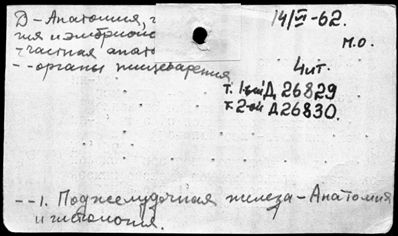 D - Анатомия, г
гия и эмбрио
- частная анато
- - органы пищеварения
14/VI - 62.
м.о.
4 ит.
т. 1-ый Д 26829
т. 2-ой Д 26830.
- - 1. Поджелудочная железа - Анатомия
и гистология.